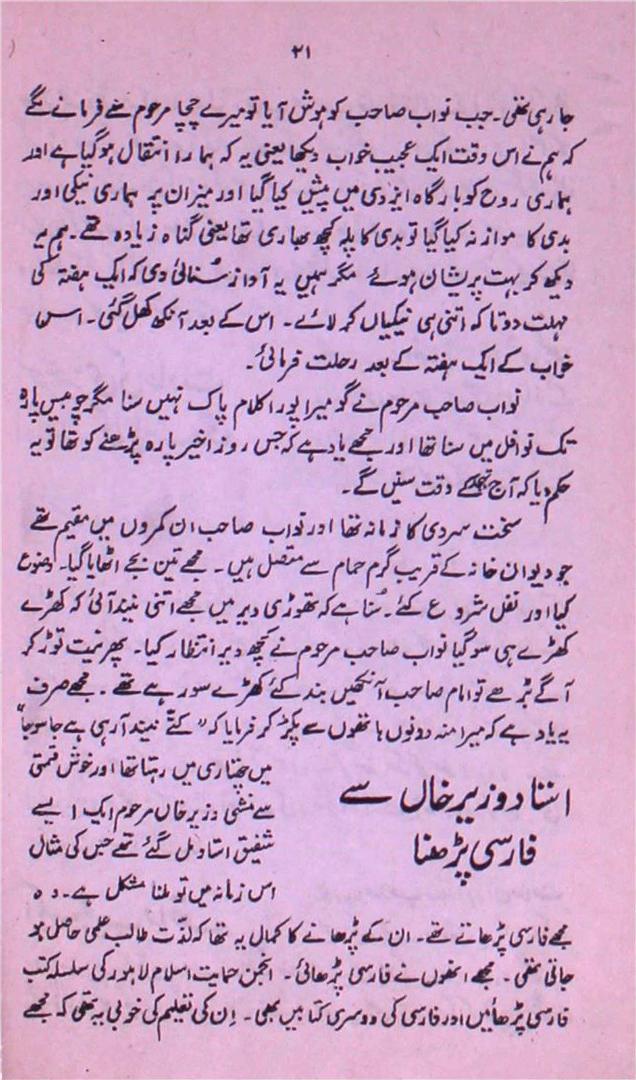 ۲۱
جا رہی تھی۔ جب نواب صاحب کو ہوش آیا تو میرے چچا مرحوم سے فرمانے لگے
کہ ہم نے اس وقت ایک عجیب خواب دیکھا یعنی یہ کہ ہمارا انتقال ہو گیا ہے اور
ہماری روح کو بارگاہ ایزدی میں پیش کیا گیا اور میزان پر ہماری نیکی اور
بدی کا موازنہ کیا گیا تو بدی کا پلہ کچھ بھاری تھا یعنی گناہ زیادہ تھے۔ ہم یہ
دیکھ کر بہت پریشان ہوئے مگر ہمیں یہ آواز سُنائی دی کہ ایک ہفتہ کی
مہلت دو تا کہ اتنی ہی نیکیاں کر لائے۔ اس کے بعد آنکھ کھل گئی۔ اس
خواب کے ایک ہفتہ کے بعد رحلت فرمائی۔
نواب صاحب مرحوم نے گو میرا پورا کلام پاک نہیں سنا مگر چوبیس پارہ
تک نوافل میں سنا تھا اور مجھے یاد ہے کہ جس روز اخیر پارہ پڑھنے کو تھا تو یہ
حکم دیا کہ آج تہجد کے وقت سنیں گے۔
سخت سردی کا زمانہ تھا اور نواب صاحب ان کمروں میں مقیم تھے
جو دیوان خانہ کے قریب گرم حمام سے متصل ہیں۔ مجھے تین بجے اٹھایا گیا۔ وضوع
کیا اور نفل شروع کئے۔ سُنا ہے کہ تھوڑی دیر میں مجھے اتنی نیند آئی کہ کھڑے
کھڑے ہی سو گیا نواب صاحب مرحوم نے کچھ دیر انتظار کیا۔ پھر نیت توڑ کر
آگے بڑھے تو امام صاحب آنکھیں بند کئے کھڑے سو رہے تھے۔ مجھے صرف
یہ یاد ہے کہ میرا منہ دونوں ہاتھوں سے پکڑ کر فرمایا کہ "کتّے نیند آ رہی ہے جا سو جا"
استاد وزیر خاں سے
فارسی پڑھنا
میں چھتاری میں رہتا تھا اور خوش قسمتی
سے منشی وزیر خاں مرحوم ایک ایسے
شفیق استاد مل گئے تھے جس کی مثال
اس زمانہ میں تو ملنا مشکل ہے۔ وہ
مجھے فارسی پڑھاتے تھے۔ ان کے پڑھانے کا کمال یہ تھا کہ لذّت طالب علمی حاصل ہو
جاتی تھی۔ مجھے انھوں نے فارسی پڑھائی۔ انجمن حمایت اسلام لاہور کی سلسلہ کتب
فارسی پڑھائیں اور فارسی کی دوسری کتابیں بھی۔ اِن کی تعلیم کی خوبی یہ تھی کہ مجھے